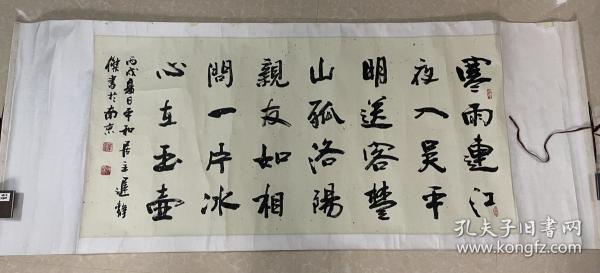 寒雨連江
夜入吴平
明送客楚
山孤洛陽
親友如相
問一片冰
心在玉壺
丙戌夏日平和居主遲
傑書於南京
孔夫子旧书网
www.kongfz.com